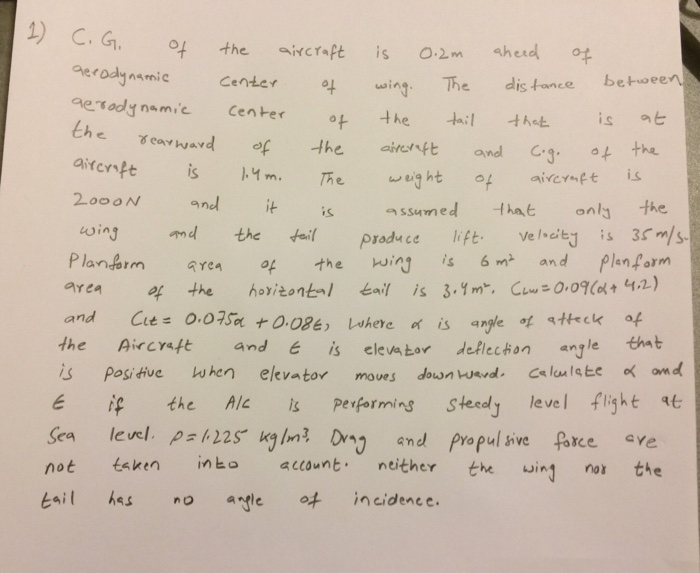 1) C. G. of the aircraft is 0.2m ahead of
aerodynamic center of wing. The distance between
aerodynamic center of the tail that is at
the rearward of the aircraft and C.g. of the
aircraft is 1.4m. The weight of aircraft is
2000N and it is assumed that only the
wing and the tail produce lift. velocity is 35 m/s.
Planform area of the wing is 6 m² and planform
area of the horizontal tail is 3.4m². CLw=0.09(α+4.2)
and CLt = 0.075α + 0.08ε, where α is angle of attack of
the Aircraft and ε is elevator deflection angle that
is positive when elevator moves downward. calculate α and
ε if the A/c is performing steady level flight at
Sea level. ρ=1.225 kg/m³. Drag and propulsive force are
not taken into account. neither the wing nor the
tail has no angle of incidence.